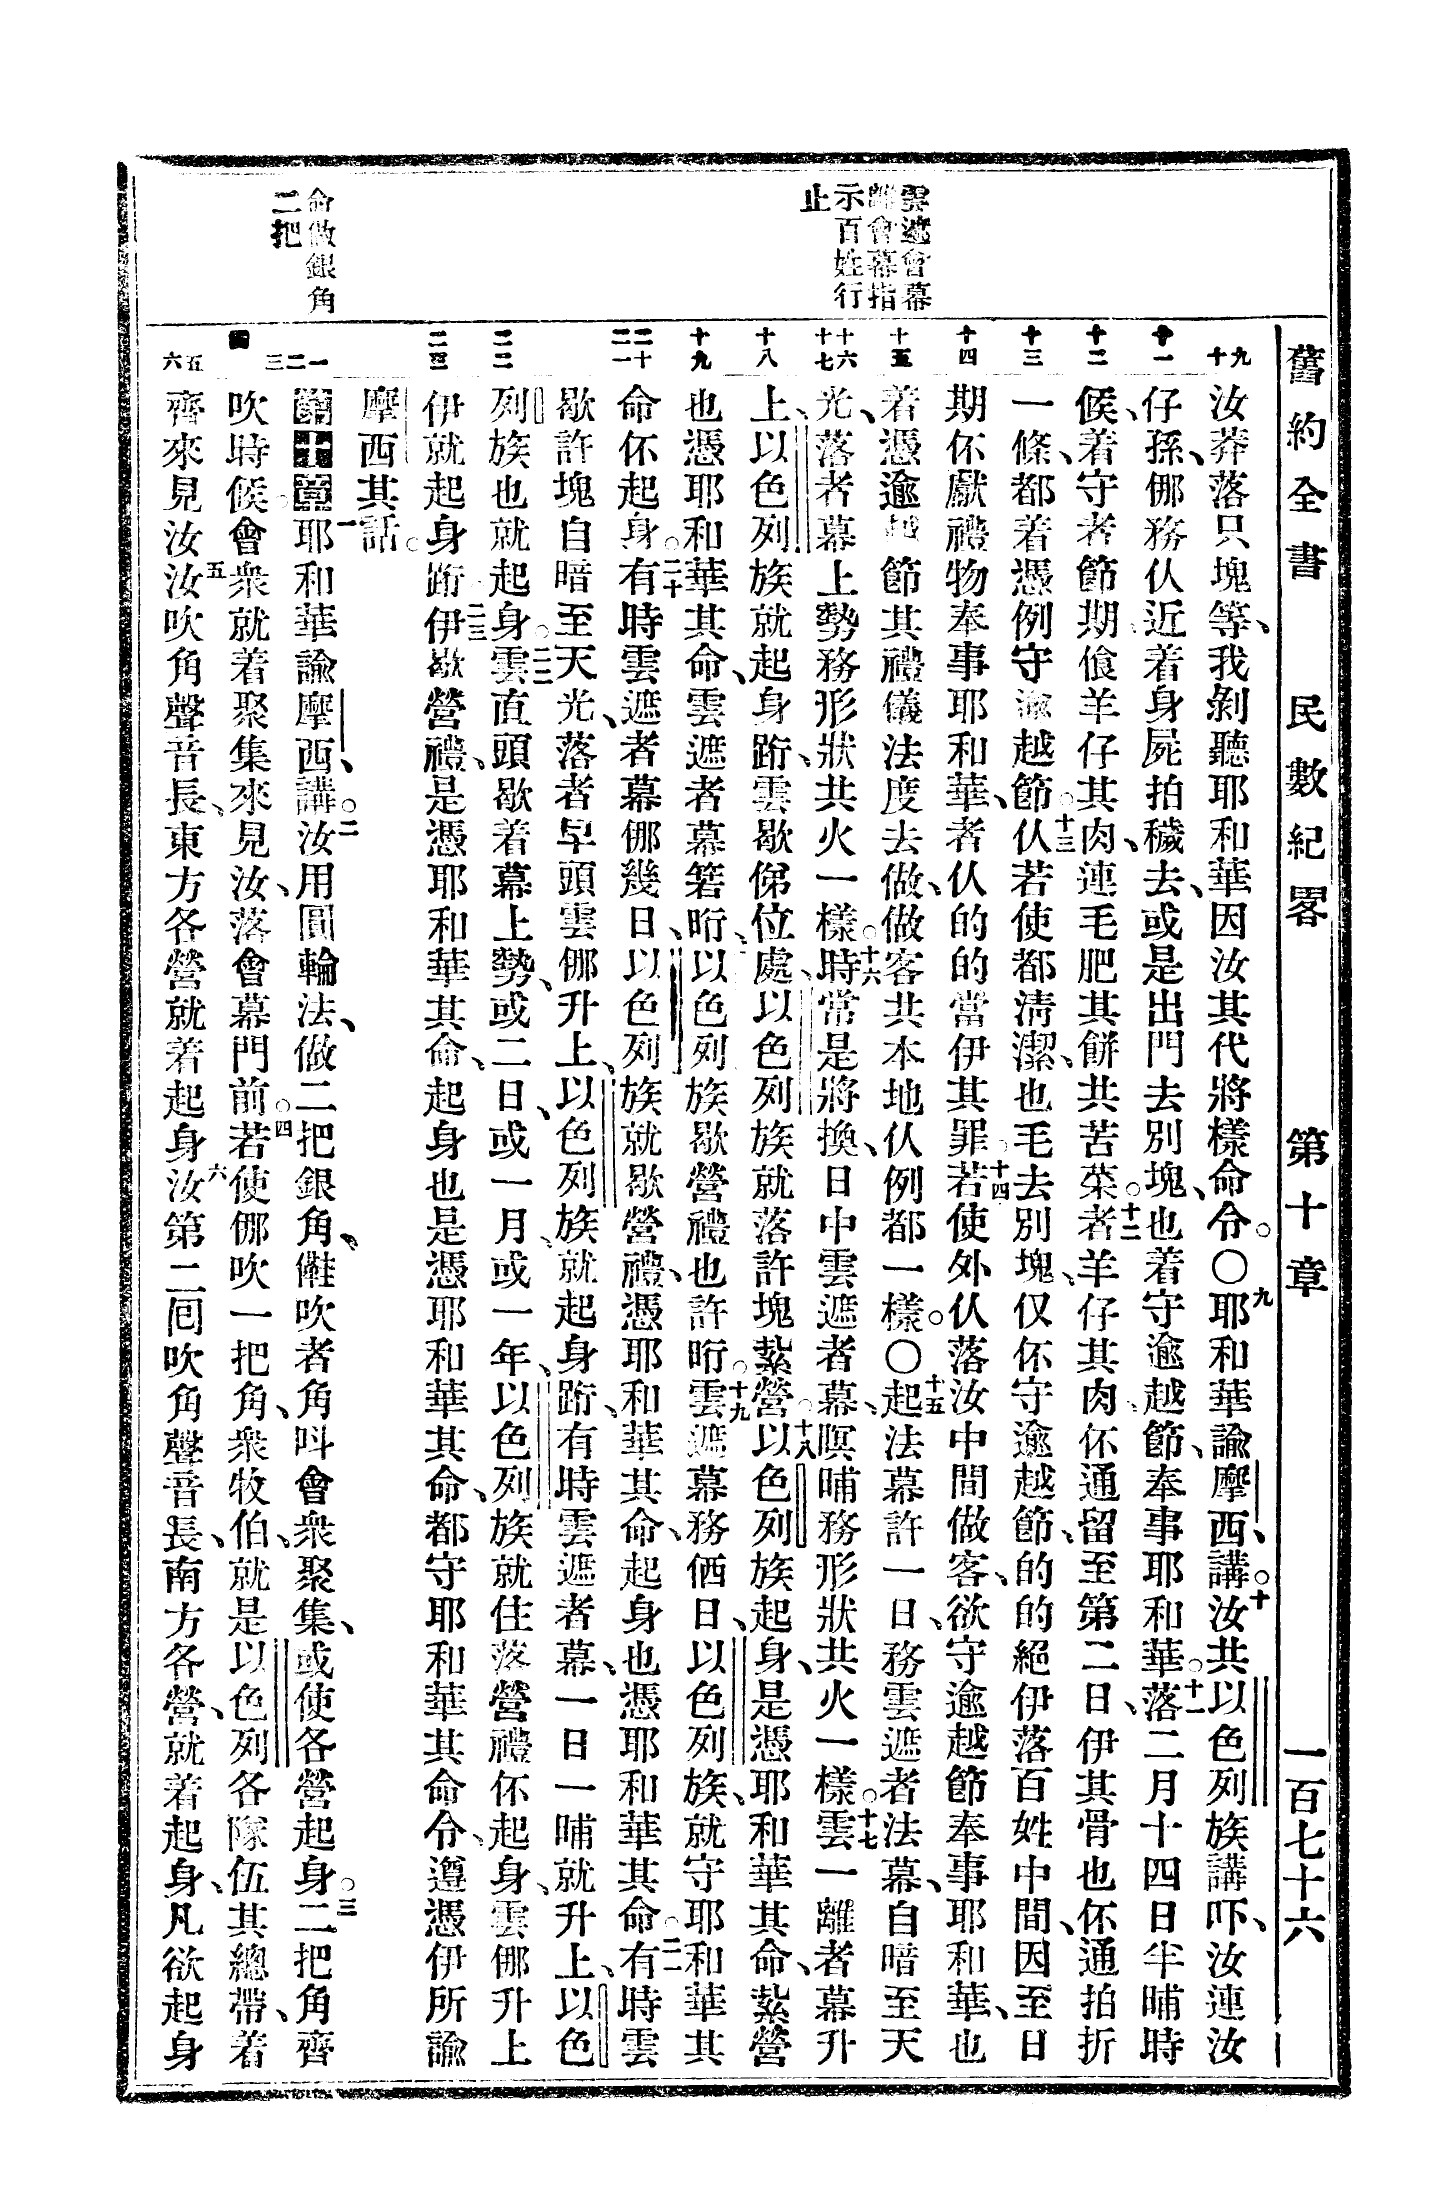 舊約全書　民數紀畧　第十章　一百七十六
雲遮會幕
離會幕指
示百姓行
止
命做銀角
二把
九 十
十一
十二
十三
十四
十五
十六 十七
十八
十九
二十 二一
二二
二三
一 二 三
四
五 六
汝莽落只塊等、我剝聽耶和華因汝其代將樣命令。〇九耶和華諭摩西、講。十汝共以色列族講吓、汝連汝
仔孫、㑚務仈近着身屍拍穢去、或是出門去別塊、也着守逾越節、奉事耶和華。十一落二月十四日半晡時
候、着守者節期、飡羊仔其肉、連毛肥其餅共苦菜。十二者羊仔其肉、伓通留至第二日、伊其骨也伓通拍折
一條、都着憑例守逾越節。十三仈若使都清潔、也毛去別塊、仅伓守逾越節、的的絕伊落百姓中間、因至日
期伓獻禮物奉事耶和華、者仈的的當伊其罪。十四若使外仈落汝中間做客、欲守逾越節奉事耶和華、也
着憑逾越節其禮儀法度去做、做客共本地仈例都一樣。〇十五起法幕許一日、務雲遮者法幕、自暗至天
光、落者幕上勢務形狀共火一樣。十六時常是將換、日中雲遮者幕、暝晡務形狀共火一樣。十七雲一離者幕升
上、以色列族就起身跲、雲歇俤位處、以色列族就落許塊紮營。十八以色列族起身、是憑耶和華其命、紮營
也憑耶和華其命、雲遮者幕箬昕、以色列族歇營禮也許昕。十九雲遮幕務䣐日、以色列族、就守耶和華其
命伓起身。二十有時雲遮者幕㑚幾日、以色列族就歇營禮、憑耶和華其命、起身也憑耶和華其命。二一有時雲
歇許塊自暗至天光、落者早頭雲㑚升上、以色列族、就起身跲、有時雲遮者幕、一日一晡就升上、以色
列族也就起身。二二雲直頭歇着幕上勢、或二日、或一月、或一年、以色列族就住落營禮伓起身、雲㑚升上
伊就起身跲。二三伊歇營禮、是憑耶和華其命、起身也是憑耶和華其命、都守耶和華其命令、遵憑伊所諭
摩西其話。
第十章 一耶和華諭摩西、講。二汝用圓輪法、做二把銀角、𠋥吹者角、呌會衆聚集、或使各營起身。三二把角齊
吹時候、會衆就着聚集來見汝、落會幕門前。四若使㑚吹一把角、衆牧伯、就是以色列各隊伍其總帶、着
齊來見汝。五汝吹角聲音長、東方各營就着起身。六汝第二囘吹角聲音長、南方各營、就着起身、凡欲起身